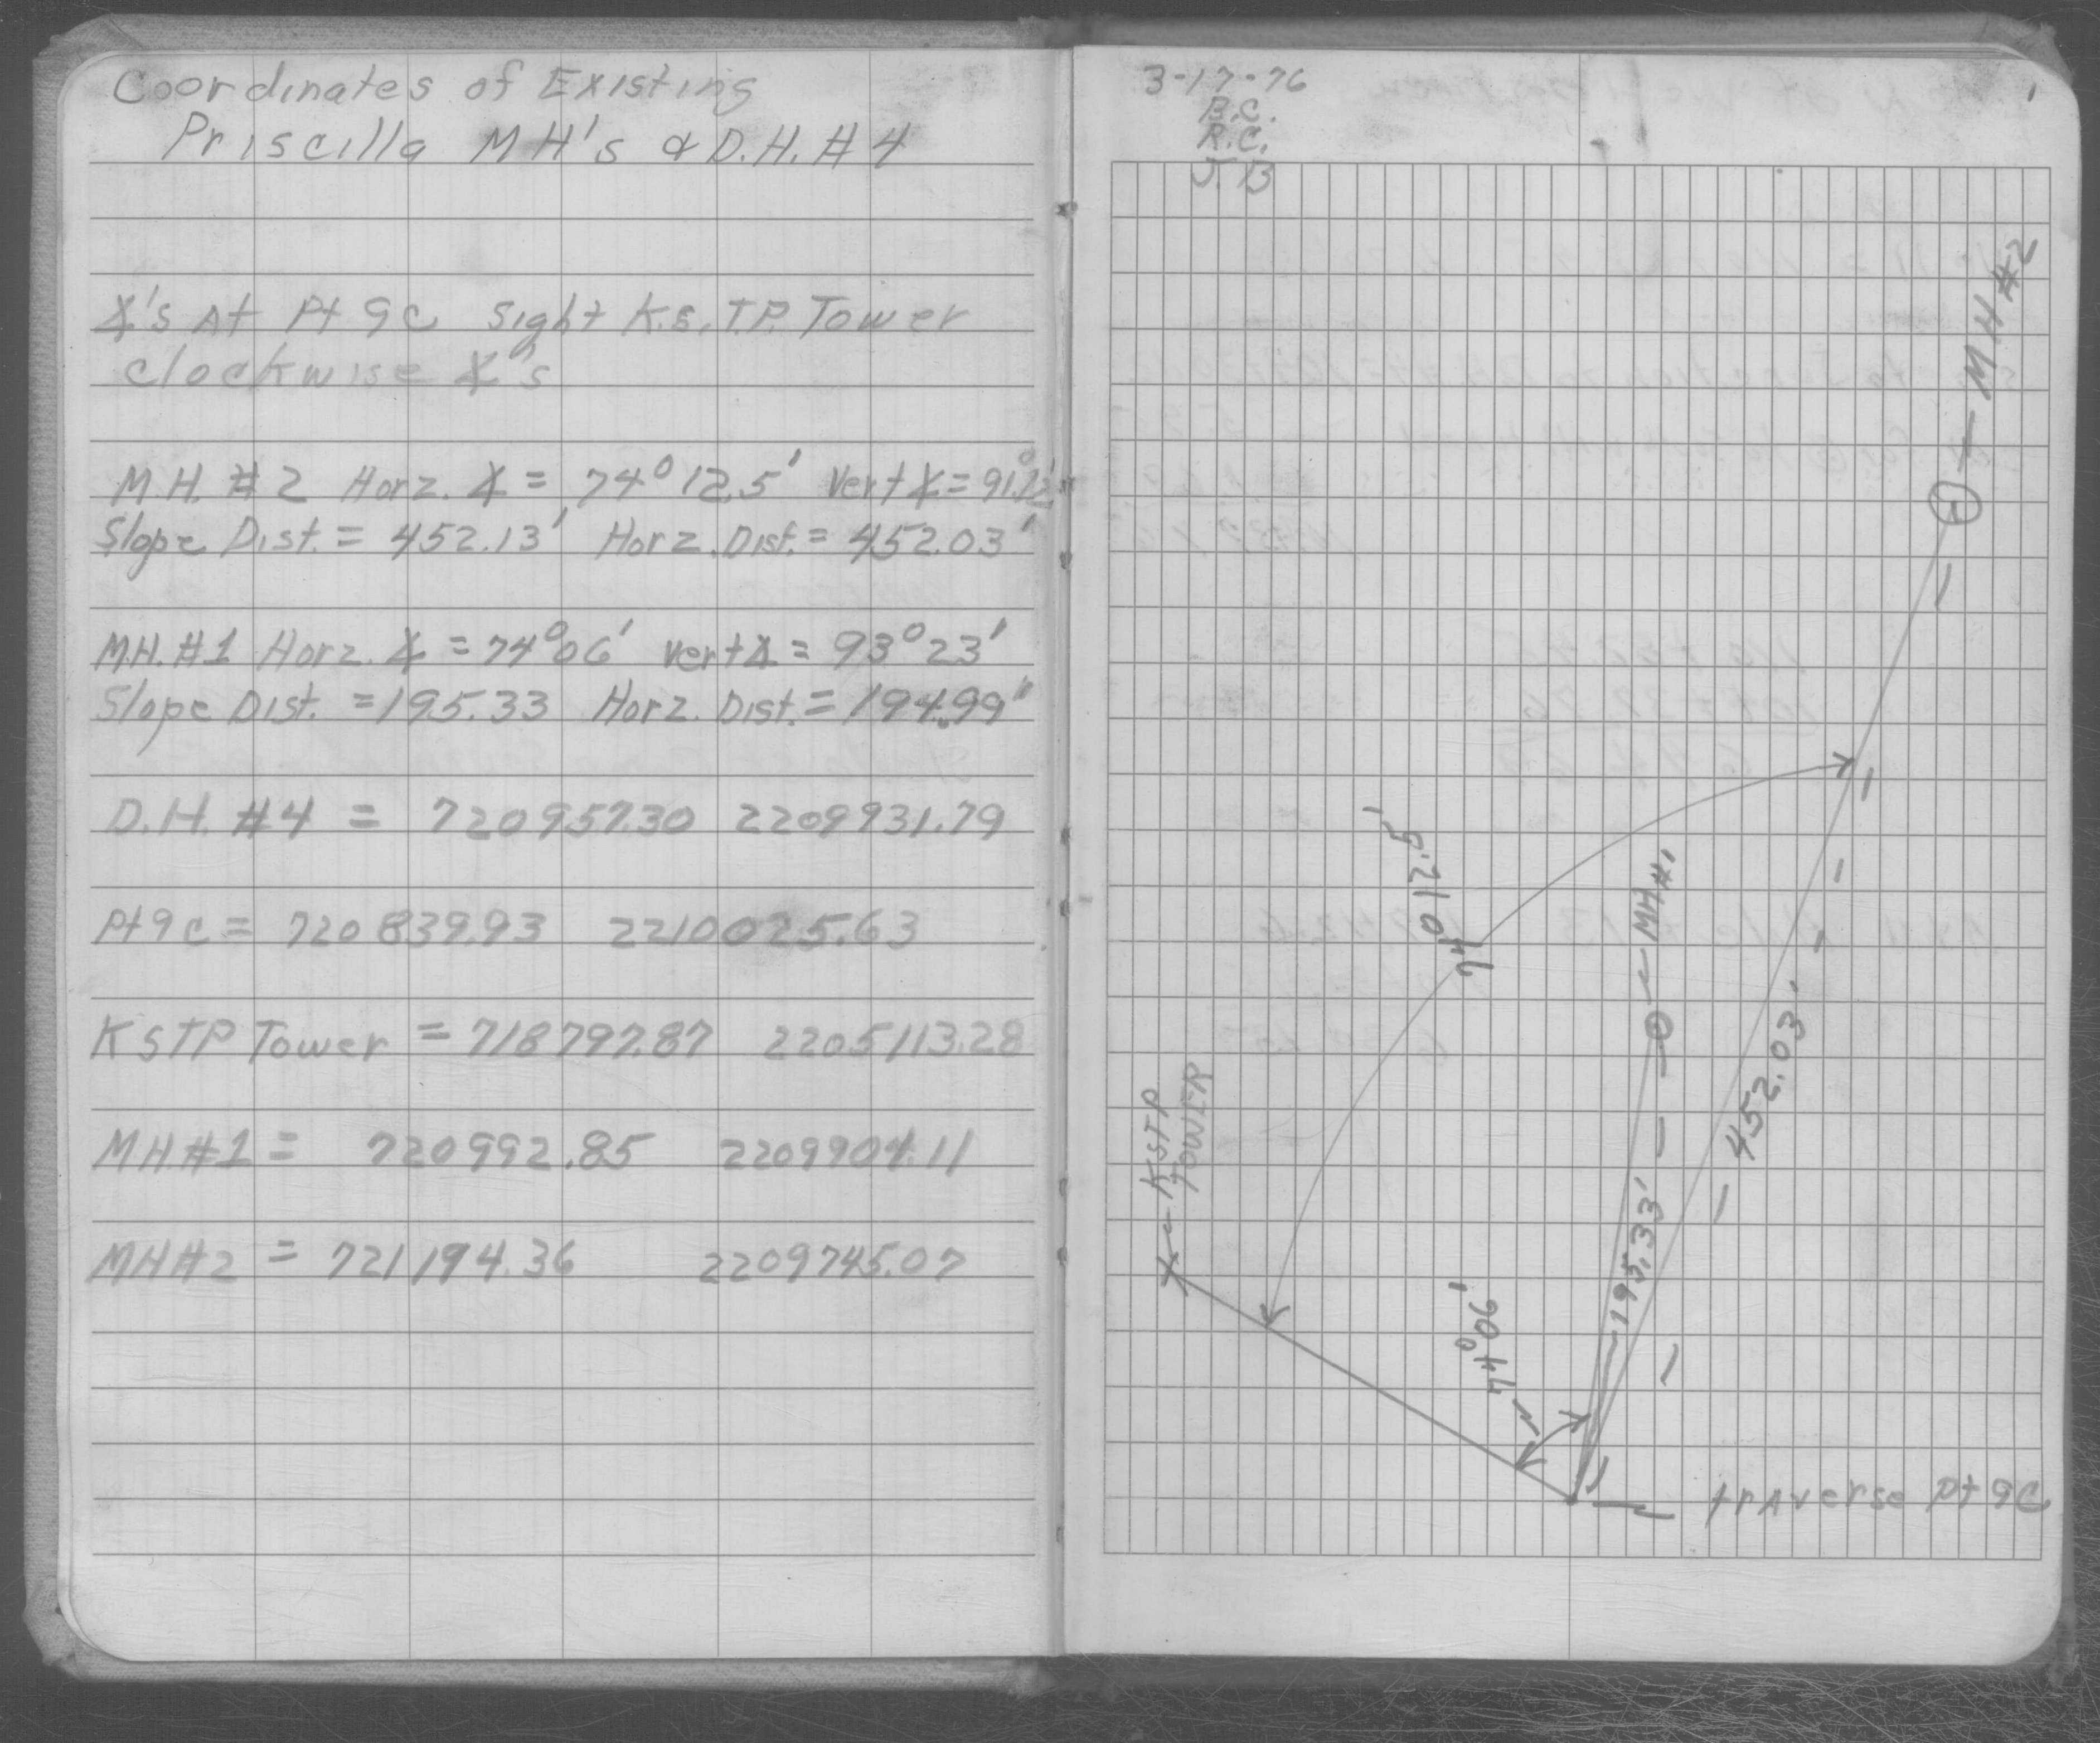 Coordinates of Existing
Priscilla MH's & D.H. #4
∠'s At Pt 9C Sight K.S.T.P. Tower
clockwise ∠'s
M.H. #2 Horz. ∠ = 74° 12.5' Vert ∠ = 91°12'
Slope Dist. = 452.13' Horz. Dist. = 452.03'
M.H. #1 Horz. ∠ = 74°06' Vert ∠ = 93°23'
Slope Dist. = 195.33 Horz. Dist. = 194.99'
D.H. #4 = 720957.30 2209931.79
Pt 9C = 720839.93 2210025.63
KSTP Tower = 718797.87 2205113.28
MH#1 = 720992.85 2209904.11
MH#2 = 721194.36 2209745.07
3-17-76
B.C.
R.C.
J.B
1
MH #2
74°12.5'
MH#1
452.03'
KSTP
TOWER
195.33'
74°06'
traverse Pt 9C